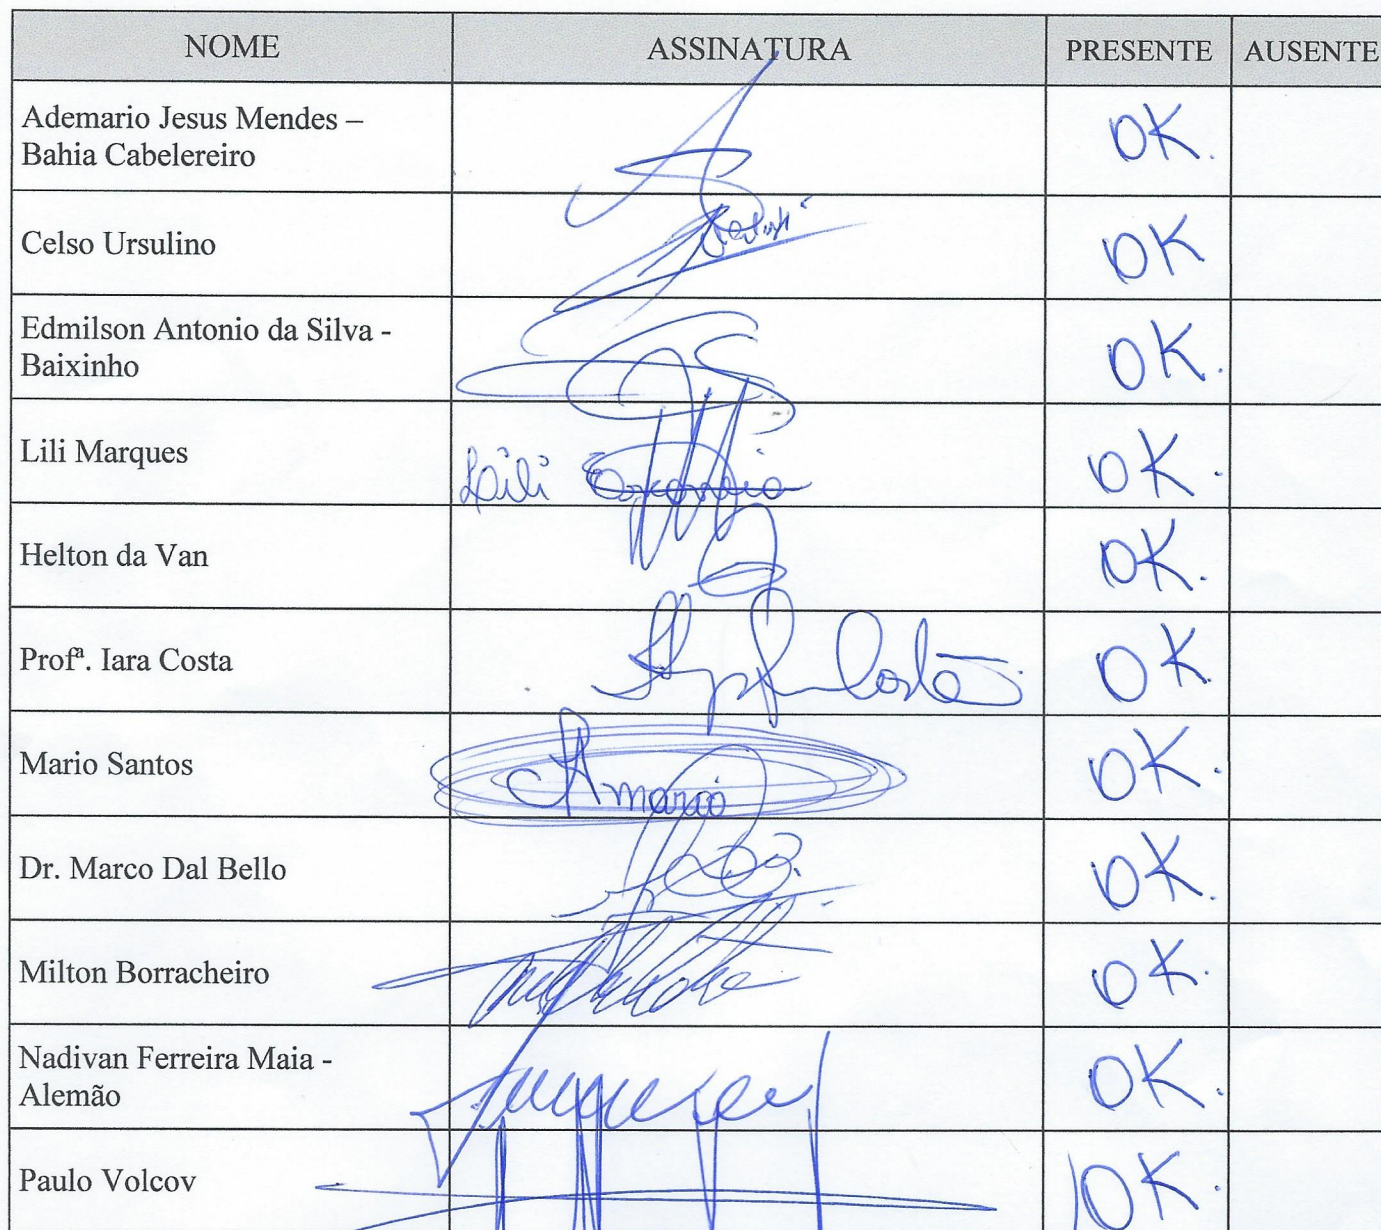 NOME ASSINATURA PRESENTE AUSENTE
Ademario Jesus Mendes –
Bahia Cabelereiro
OK.
Celso Ursulino
OK.
Edmilson Antonio da Silva -
Baixinho
OK.
Lili Marques
Lili
OK.
Helton da Van
OK.
Profª. Iara Costa
Costa
OK.
Mario Santos
Mario
OK.
Dr. Marco Dal Bello
OK.
Milton Borracheiro
OK.
Nadivan Ferreira Maia -
Alemão
OK.
Paulo Volcov
OK.